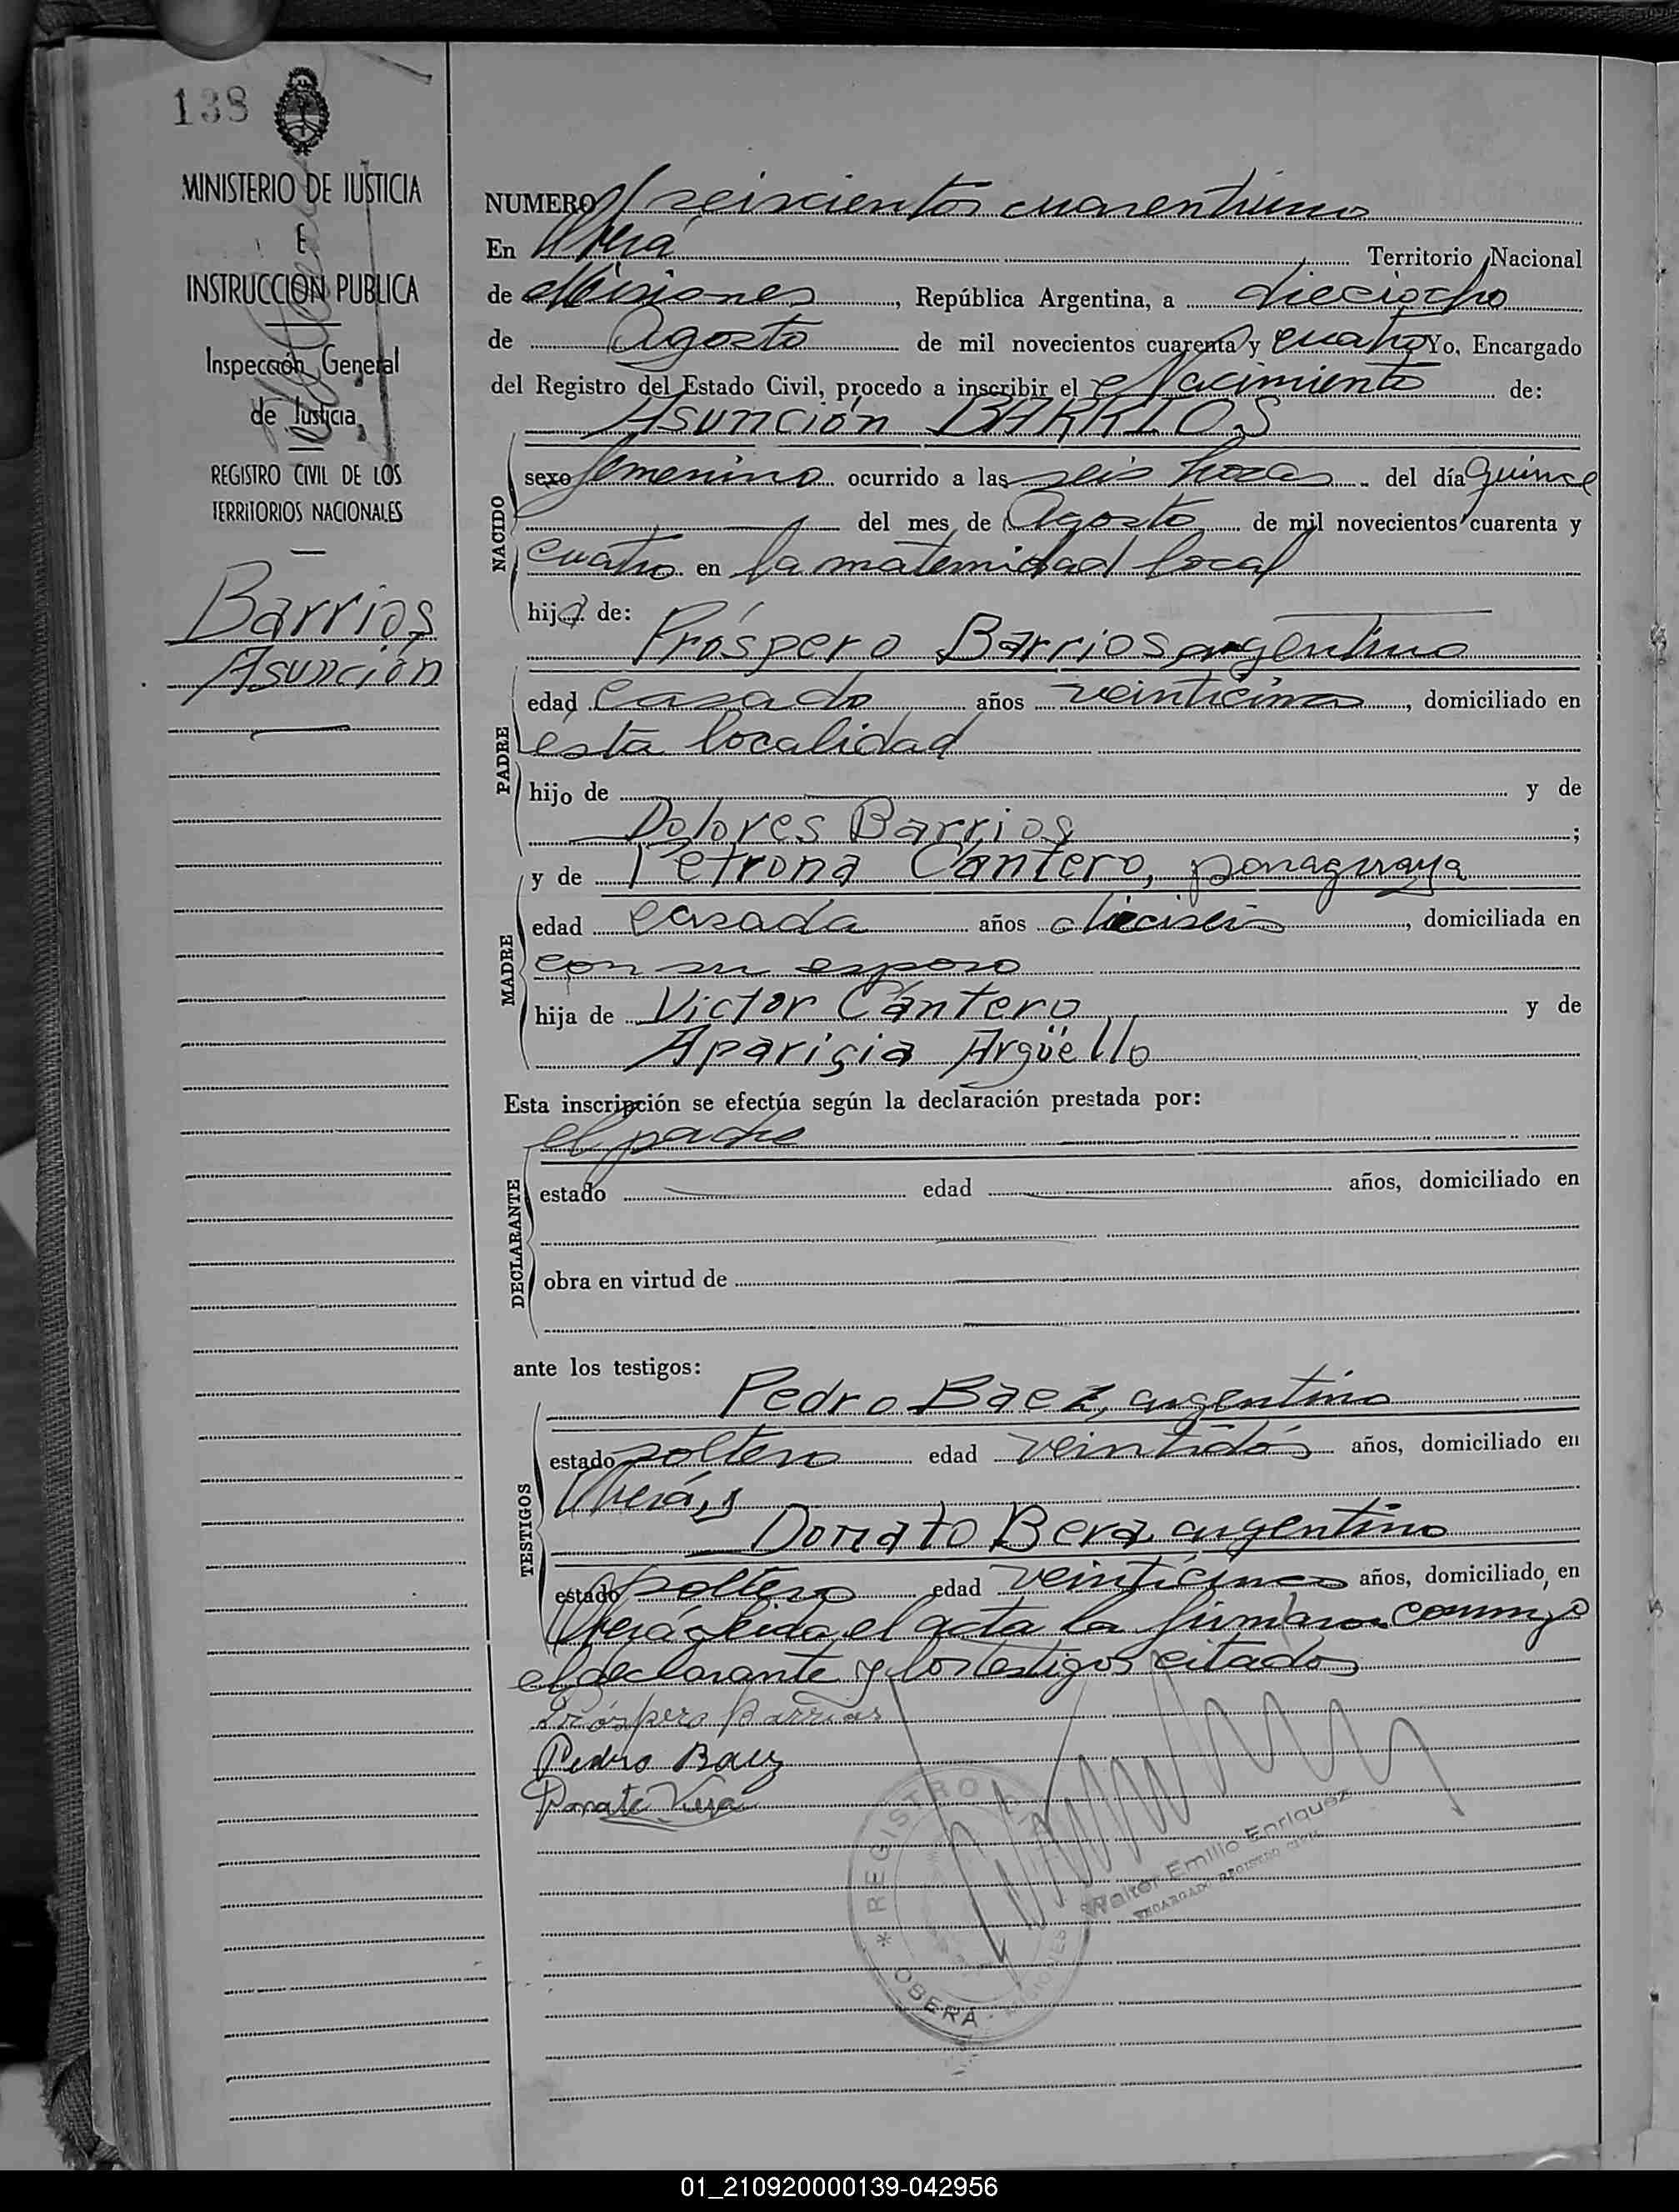 138
MINISTERIO DE JUSTICIA
E
INSTRUCCION PUBLICA
Inspección General
de Justicia
REGISTRO CIVIL DE LOS
TERRITORIOS NACIONALES
Barrios
Asunción
NUMERO seiscientos cuarentiuno
En Oberá Territorio Nacional
de Misiones, República Argentina, a dieciocho
de Agosto de mil novecientos cuarenta y cuatro Yo, Encargado
del Registro del Estado Civil, procedo a inscribir el Nacimiento de:
Asunción BARRIOS
NACIDO
sexo femenino ocurrido a las seis horas del día quince
del mes de Agosto de mil novecientos cuarenta y
cuatro en la maternidad local
hija de:
Próspero Barrios, argentino
PADRE
edad casado años veinticinco, domiciliado en
esta localidad
hijo de y de
Dolores Barrios;
y de Petrona Cantero, paraguaya
MADRE
edad casada años dieciseis, domiciliada en
con su esposo
hija de Victor Cantero y de
Aparisia Argüello
Esta inscripción se efectúa según la declaración prestada por:
el padre
DECLARANTE
estado edad años, domiciliado en
obra en virtud de
ante los testigos:
Pedro Baez, argentino
TESTIGOS
estado soltero edad veintidós años, domiciliado en
Oberá, y
Donato Bera, argentino
estado soltero edad veinticinco años, domiciliado, en
Oberá, leida el acta la firmaron conmigo
el declarante y los testigos citados
Próspero Barrios
Pedro Baez
Donato Vera
REGISTRO
OBERÁ - MISIONES
Walter Emilio Enriquez
ENCARGADO REGISTRO CIVIL
01_210920000139-042956